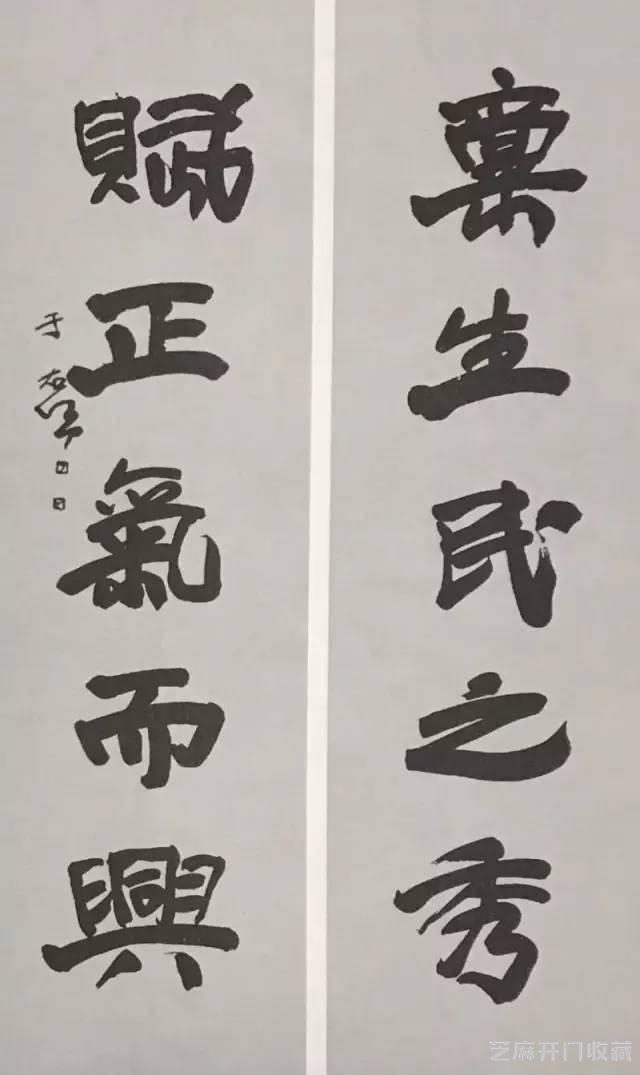 稟生民之秀
賦正氣而興
于右任
芝麻开门收藏